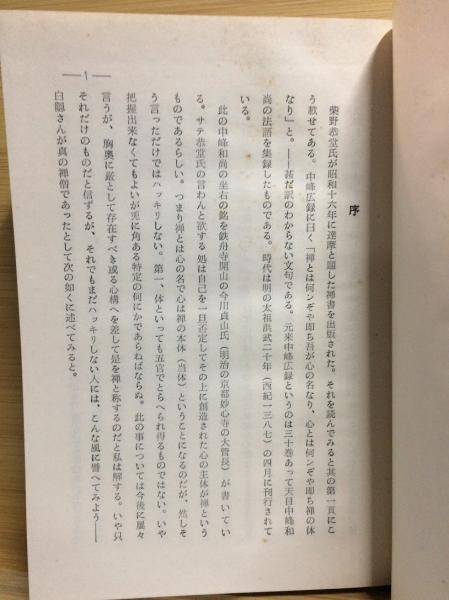 序
柴野恭堂氏が昭和十六年に達摩と題した禅書を出版された。それを読んでみると其の第一頁にこ
う載せてある。中峰広録に曰く「禅とは何ンぞや即ち吾が心の名なり、心とは何ンぞや即ち禅の体
なり」と。――甚だ訳のわからない文句である。元来中峰広録というのは三十巻あって天目中峰和
尚の法語を集録したものである。時代は明の太祖洪武二十年（西紀一三八七）の四月に刊行されて
いる。
此の中峰和尚の坐右の銘を鉄舟寺開山の今川貞山氏（明治の京都妙心寺の大管長）が書いてい
る。サテ恭堂氏の言わんと欲する処は自己を一旦否定してその上に創造された心の主体が禅という
ものであるらしい。つまり禅とは心の名で心は禅の本体（当体）ということになるのだが、然しそ
う言っただけではハッキリしない。第一、体といっても五官でとらへられ得るものではない。いや
把握出来なくてもよいが兎に角ある特定の何にかであらねばならぬ。此の事については今後に屡々
言うが、胸奥に厳として存在すべき或る心構へを差して是を禅と称するのだと私は解する。いや只
それだけのものだと信ずるが、それでもまだハッキリしない人には、こんな風に譬へてみよう――
白隠さんが真の禅僧であったとして次の如くに述べてみると。
— 1 —